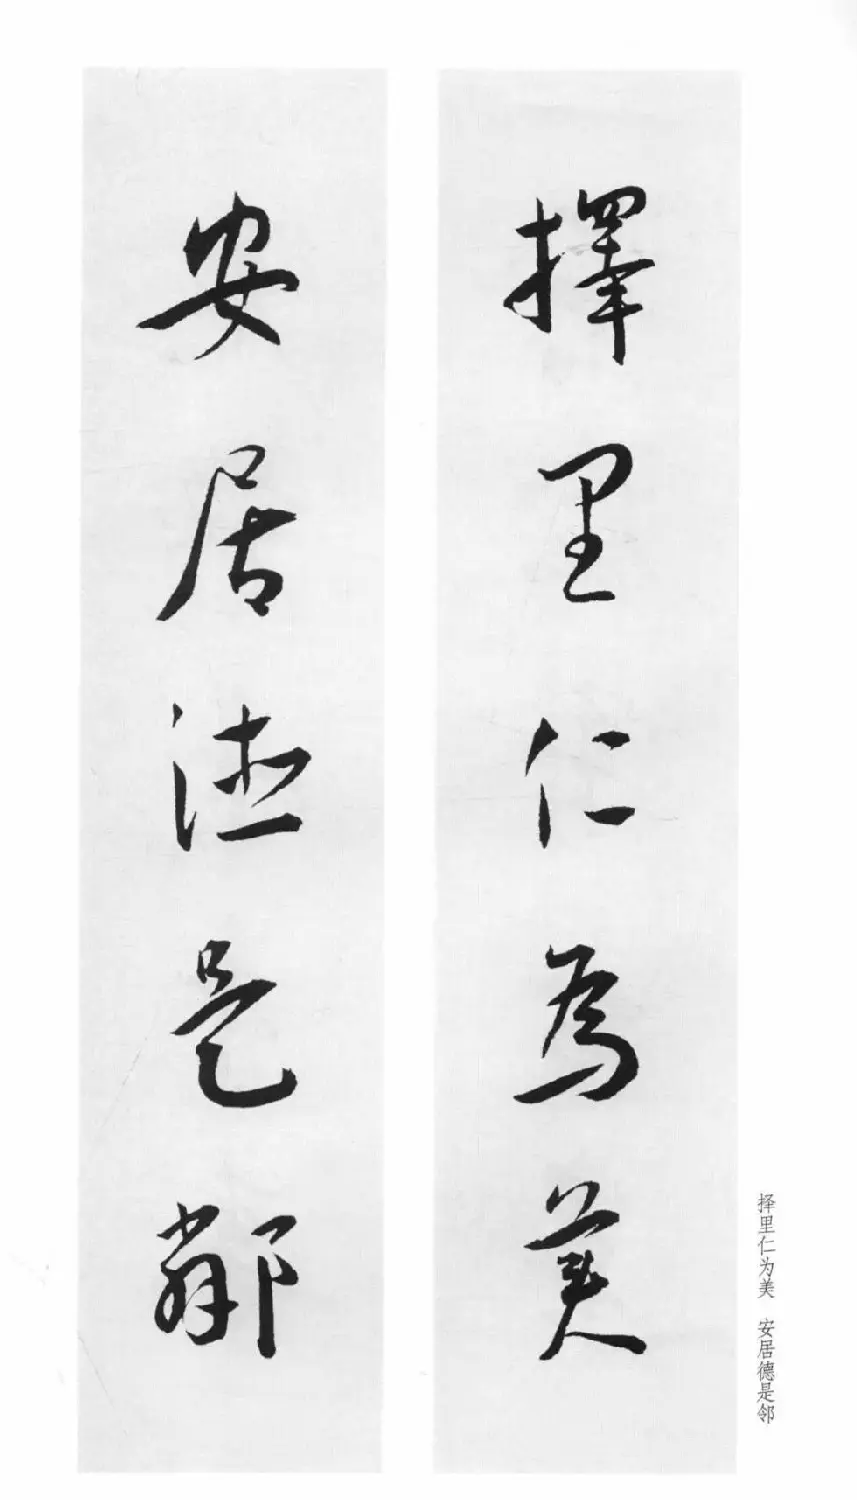 擇里仁為美
安居德是鄰
择里仁为美　安居德是邻